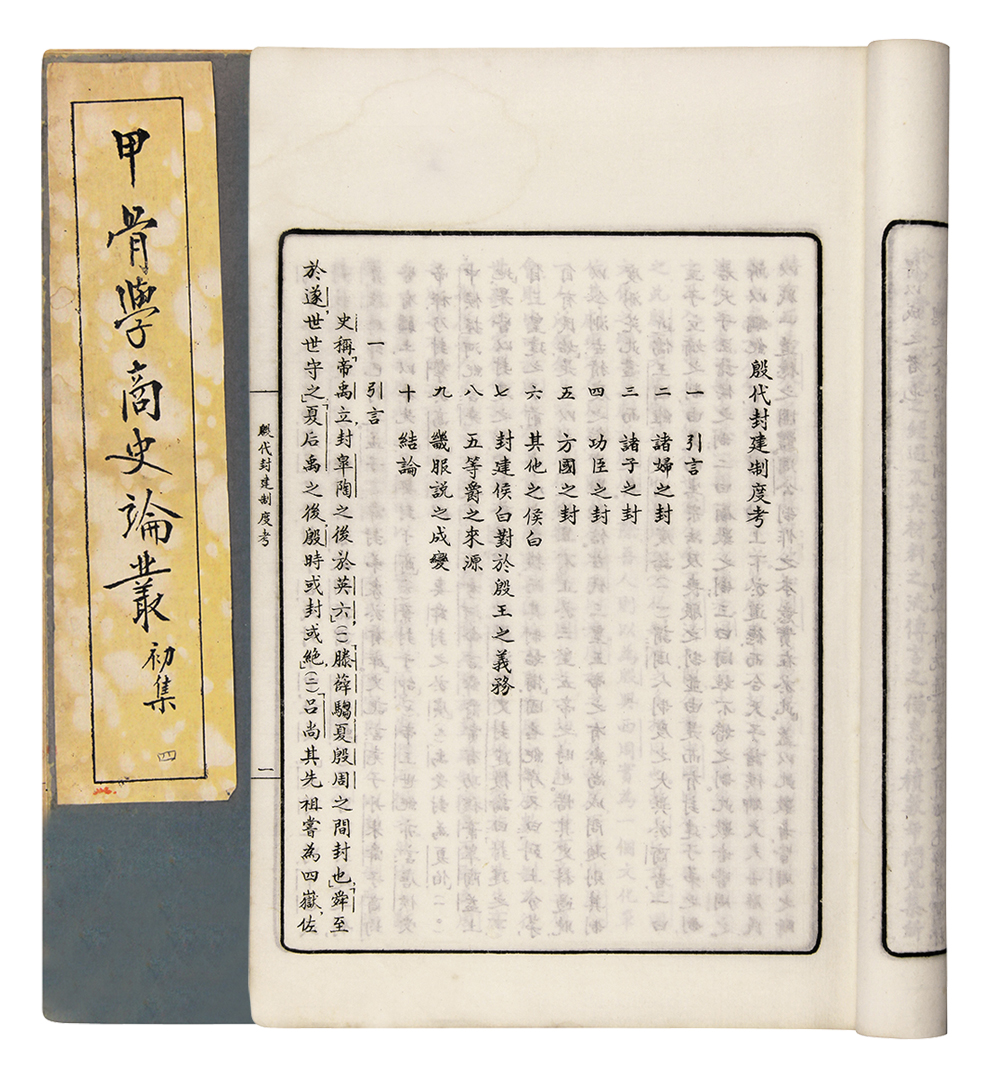 甲骨學商史論叢初集
四
殷代封建制度考
一 引言
二 諸婦之封
三 諸子之封
四 功臣之封
五 方國之封
六 其他之侯白
七 封建侯白對於殷王之義務
八 五等爵之來源
九 畿服說之成變
十 結論
一 引言
史稱「帝禹立封皋陶之後於英六」(一)「滕薛騶夏殷周之間封也」「舜至
於遂世世守之」「夏后禹之後殷時或封或絶」(二)「呂尚其先祖嘗為四嶽佐
殷代封建制度考
一